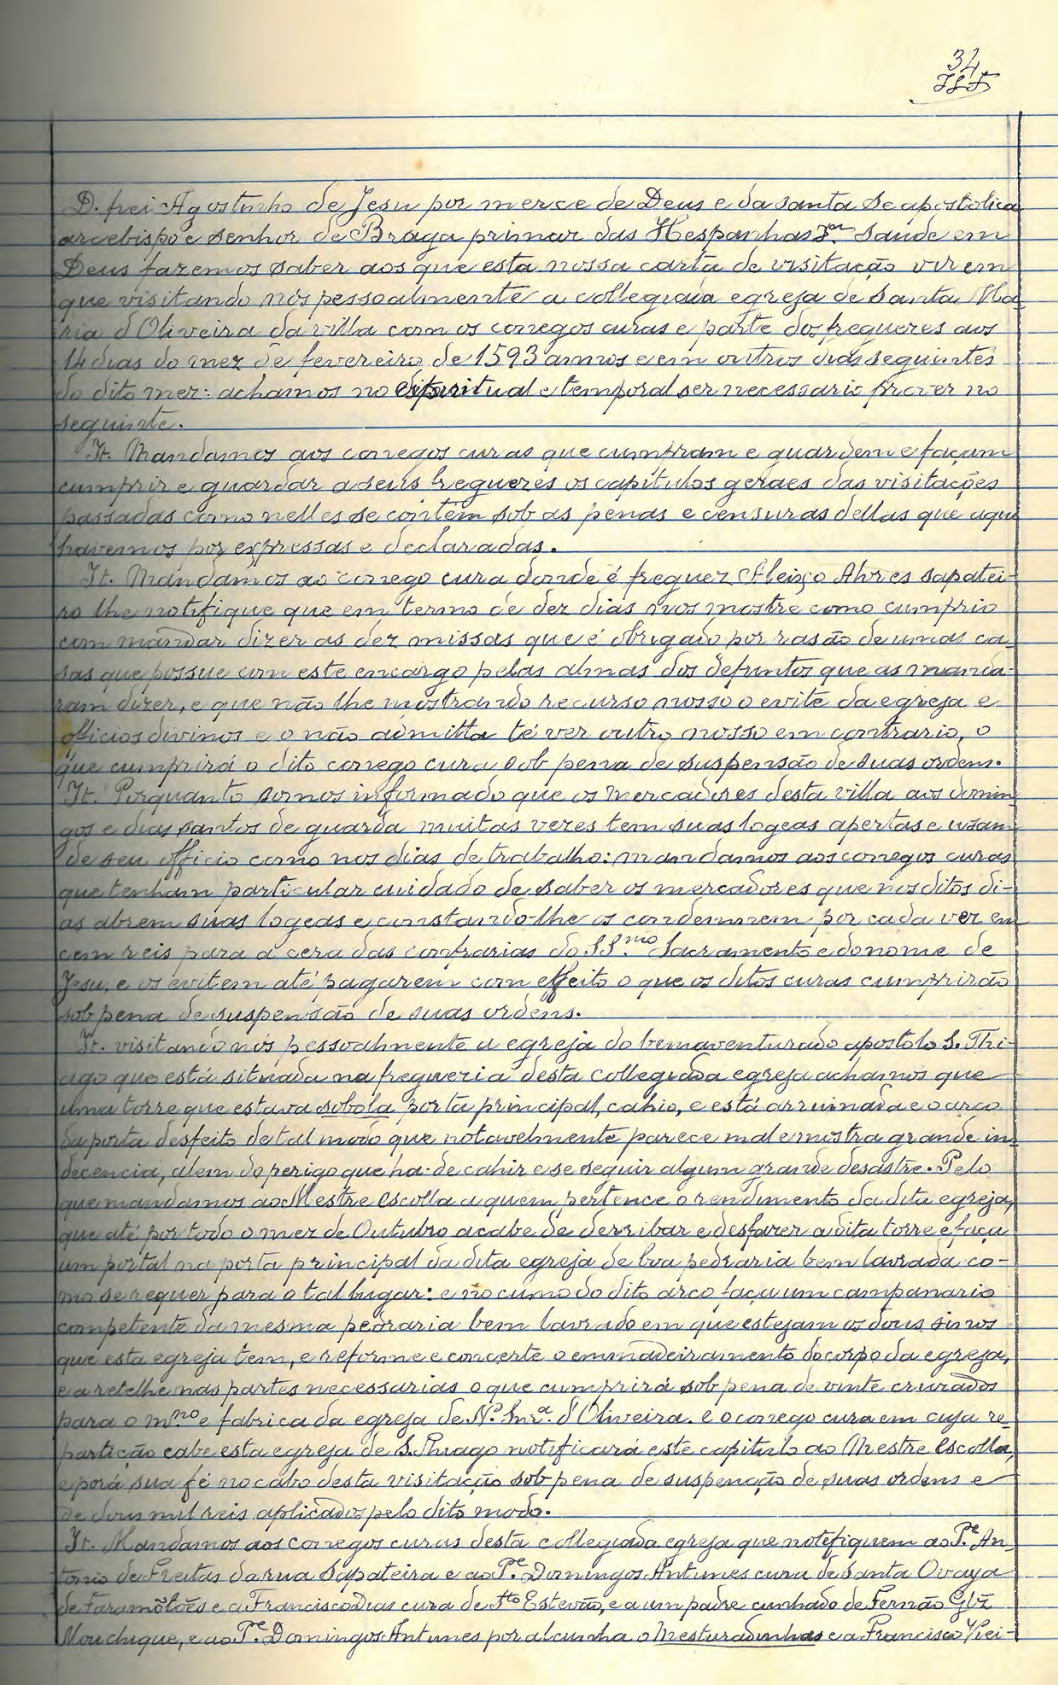 34
D. frei Agostinho de Jesu por merce de Deus e da santa se apostolica
arcebispo e senhor de Braga primaz das Hespanhas &.ª Saude em
Deus fazemos saber aos que esta nossa carta de visitação virem
que visitando nós pessoalmente a collegiada egreja de Santa Ma-
ria d'Oliveira da villa com os conegos curas e parte dos freguezes aos
14 dias do mez de fevereiro de 1593 annos e em outros dias seguintes
do dito mez: achamos no espiritual e temporal ser necessario prover no
seguinte.
It. Mandamos aos conegos curas que cumpram e guardem e façam
cumprir e guardar a seus freguezes os capitulos geraes das visitações
passadas como nelles se contêm sob as penas e censuras dellas que aqui
havemos por expressas e declaradas.
It. Mandamos ao conego cura donde é freguez Aleixo Alvres sapatei-
ro lhe notifique que em termo de dez dias nos mostre como cumprio
com mandar dizer as dez missas que é obrigado por rasão de umas ca-
sas que possue com este encargo pelas almas dos defuntos que as manda-
ram dizer, e que não lhe mostrando recurso nosso o evite da egreja e
officios divinos e o não admitta té ver outro nosso em contrario, o
que cumprirá o dito conego cura sob pena de suspensão de suas ordens.
It. Porquanto somos informado que os mercadores desta villa aos domin-
gos e dias santos de guarda muitas vezes tem suas logeas apertas e usam
de seu officio como nos dias de trabalho: mandamos aos conegos curas
que tenham particular cuidado de saber os mercadores que nos ditos di-
as abrem suas logeas e constando-lhe os condemnem por cada vez em
cem reis para a cera das confrarias do SS.mo Sacramento e do nome de
Jesu, e os evitem até pagarem com effeito o que os ditos curas cumprirão
sob pena de suspensão de suas ordens.
It. visitando nós pessoalmente a egreja do bemaventurado apostolo S. Thi-
ago que está situada na freguezia desta collegiada egreja achamos que
uma torre que estava sobola porta principal, cahio, e está arruinada e o arco
da porta desfeito de tal modo que notavelmente parece mal e mostra grande in-
decencia, alem do perigo que ha de cahir e se seguir algum grande desastre. Pelo
que mandamos ao Mestre escolla a quem pertence o rendimento da dita egreja,
que até por todo o mez de Outubro acabe de derribar e desfazer a dita torre e faça
um portal na porta principal da dita egreja de boa pedraria bem lavrada co-
mo se requer para o tal lugar: e no cumo do dito arco faça um campanario
competente da mesma pedraria bem lavrado em que estejam os dous sinos
que esta egreja tem, e reforme e concerte o emmadeiramento do corpo da egreja,
e a retelhe nas partes necessarias o que cumprirá sob pena de vinte cruzados
para o m.mo e fabrica da egreja de N.ª Snr.ª d'Oliveira. e o conego cura em cuja re-
partição cabe esta egreja de S. Thiago notificará este capitulo ao Mestre escolla,
e porá sua fé no cabo desta visitação sob pena de suspenção de suas ordens e
de dous mil reis aplicados pelo dito modo.
It. Mandamos aos conegos curas desta collegiada egreja que notifiquem ao P.e An-
tonio de Freitas da rua Sapateira e ao P.e Domingos Antunes cura de Santa Ovaya
de e a Francisco Dias cura de S.to Estevão, e a um padre cunhado de Fernão Glz
Mouchique, e ao P.e Domingos Antunes por alcunha o Mesturadinhas e a Francisco Viei-